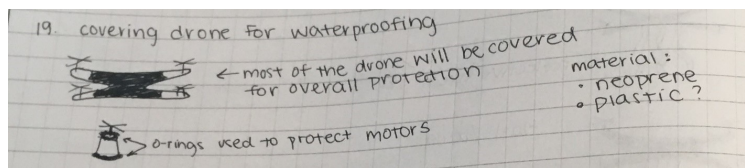 19. covering drone for waterproofing
← most of the drone will be covered
for overall protection
material:
• neoprene
• plastic?
o-rings used to protect motors